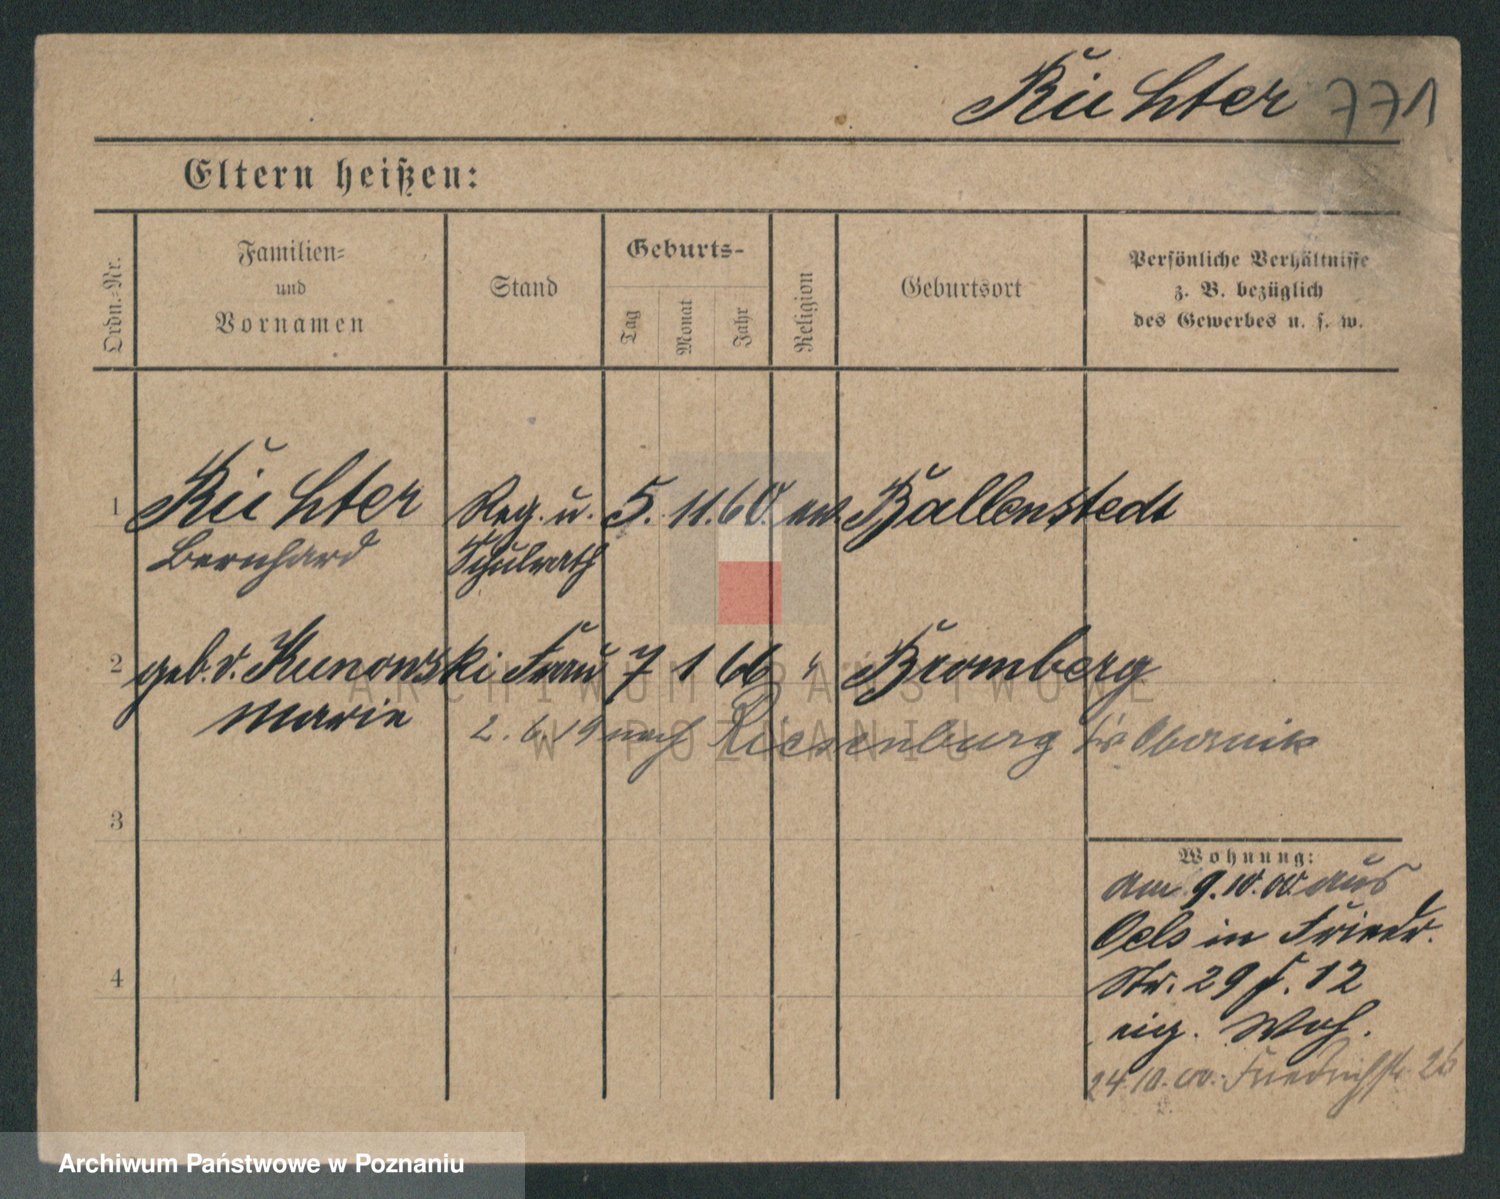 Richter 771
Eltern heißen:
Ordn.-Nr.
Familien-
und
Vornamen
Stand
Geburts-
Tag
Monat
Jahr
Religion
Geburtsort
Persönliche Verhältnisse
z. B. bezüglich
des Gewerbes u. s. w.
1 Richter Reg. u. 5. 11. 60. ev. Ballenstedt
Bernhard Schulrath
2 geb. v. Kunowski Frau 7 1 66 " Bromberg
Marie
2. 6. 19 nach Riesenburg Kr. Obornik
3
Wohnung:
am 9.10.00. aus
Oels in Friedr.
4
Str. 29 b. 12
eig. Woh.
24.10.00. Friedrichstr. 26
ARCHIWUM PAŃSTWOWE
W POZNANIU
Archiwum Państwowe w Poznaniu